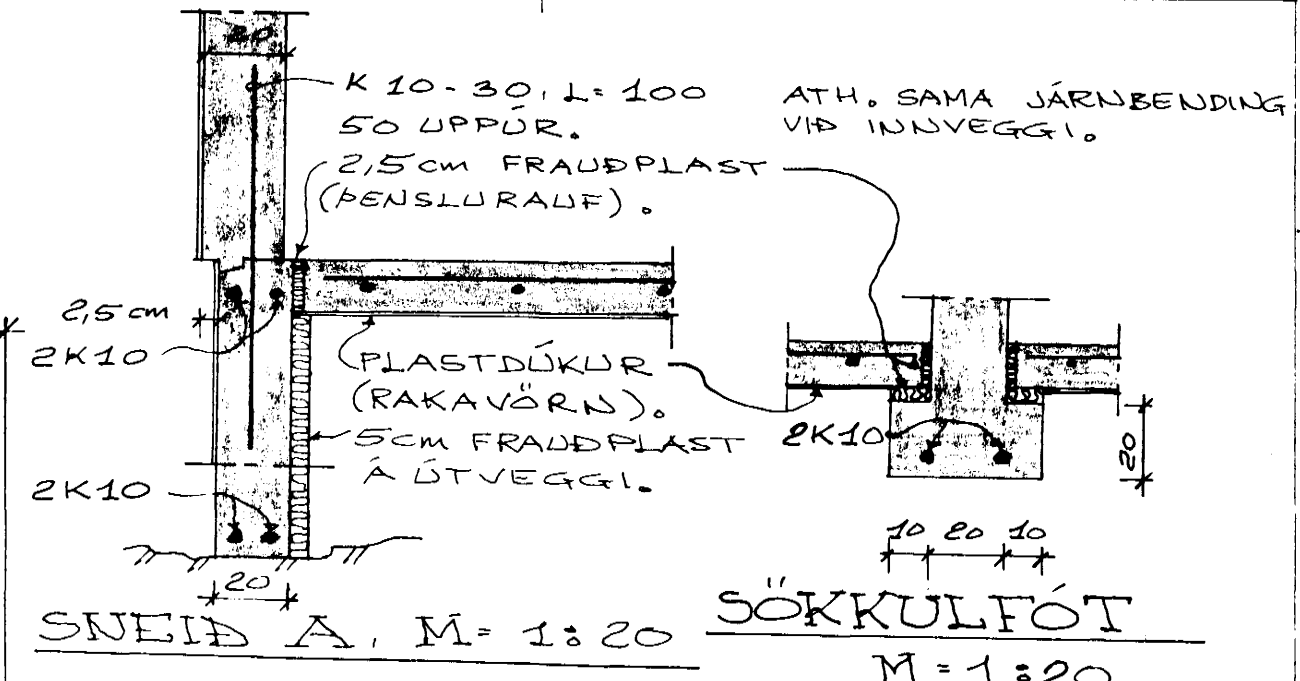 20
K 10-30, L= 100
50 UPPÚR.
ATH. SAMA JÁRNBENDING
VIÐ INNVEGGI.
2,5 cm FRAUÐPLAST
(ÞENSLURAUF).
2,5 cm
2K10
PLASTDÚKUR
(RAKAVÖRN).
5cm FRAUÐPLAST
Á ÚTVEGGI.
2K10
20
SNEIÐ A, M= 1:20
2K10
20
10 20 10
SÖKKULFÓT
M = 1:20